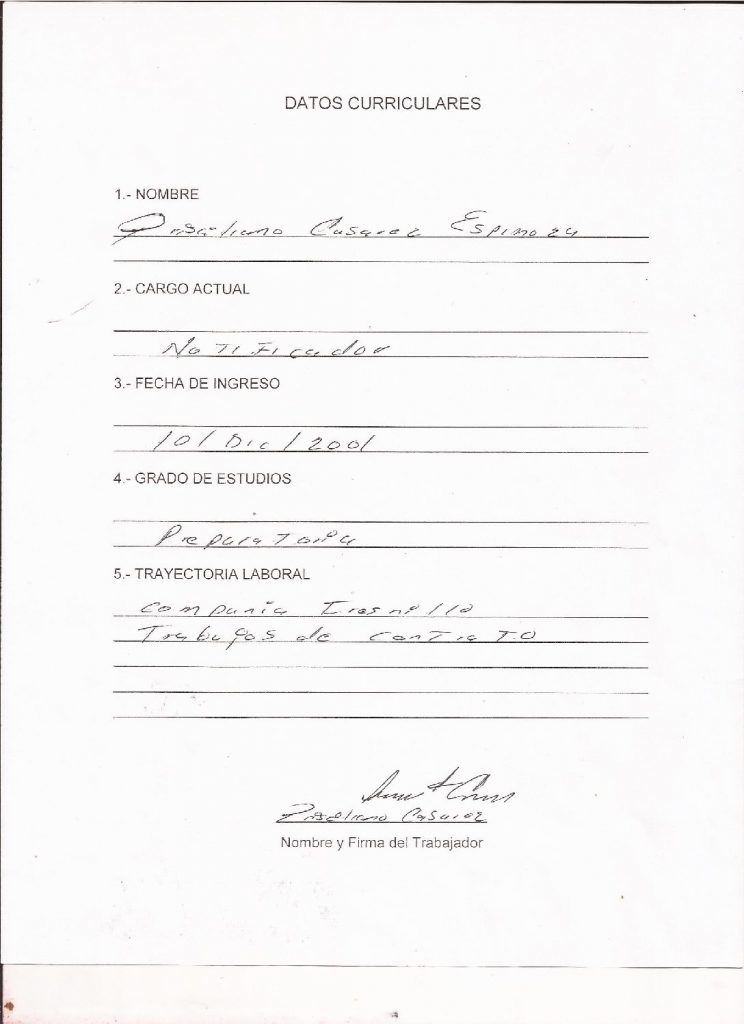 DATOS CURRICULARES
1.- NOMBRE
Casarez Espinoza
2.- CARGO ACTUAL
Notificador
3.- FECHA DE INGRESO
10/Dic/2001
4.- GRADO DE ESTUDIOS
Preparatoria
5.- TRAYECTORIA LABORAL
compania
Trabajos de contrato
Casarez
Nombre y Firma del Trabajador